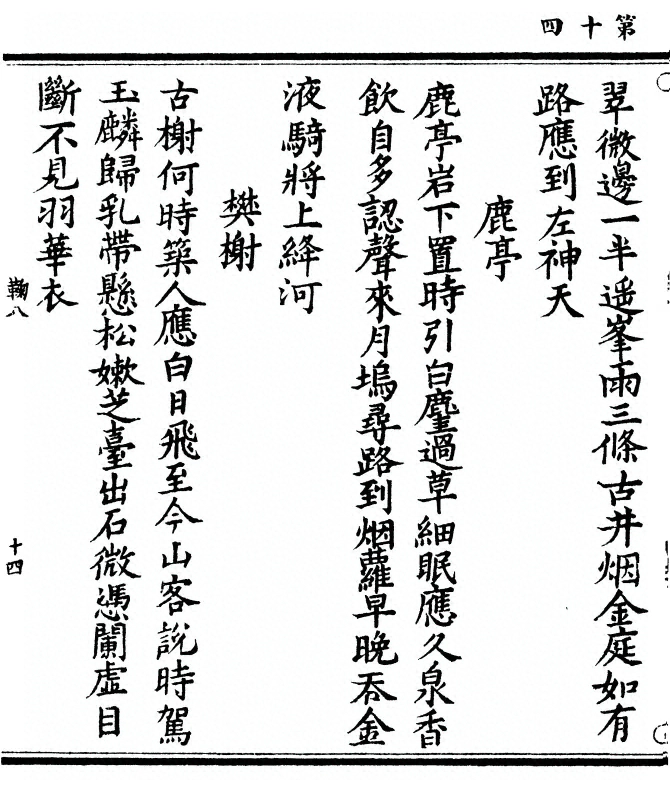 第十四
翠微邊一半遥峯雨三條古井烟金庭如有
路應到左神天
鹿亭
鹿亭岩下置時引白過草細眠應久泉香
飲自多認聲來月塢尋路到烟蘿早晚吞金
液騎將上絳河
樊榭
古榭何時築人應白日飛至今山客說時駕
玉麟歸乳蒂懸松嫰芝臺出石微憑闌虛目
斷不見羽華衣
鞠八
十四